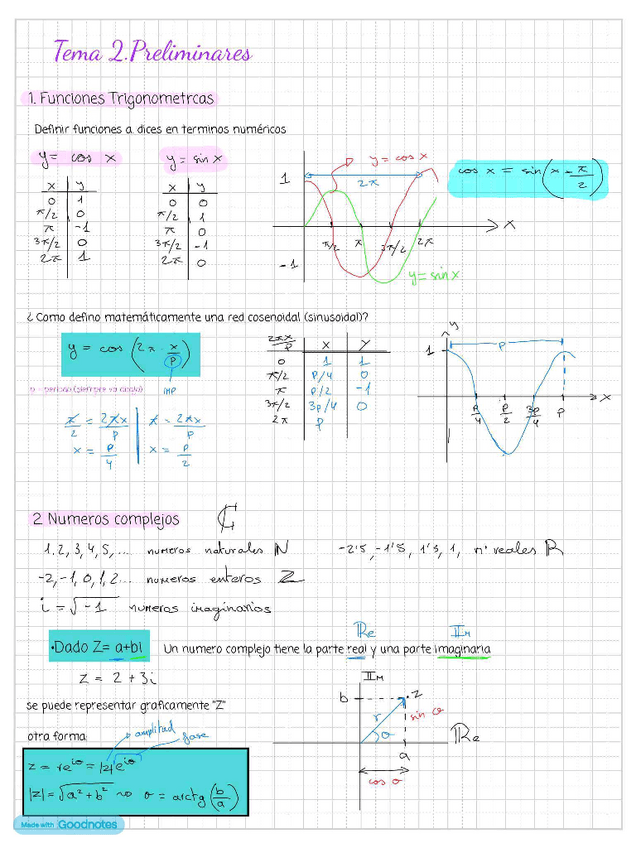 Tema 2.Preliminares
1. Funciones Trigonometrcas
Definir funciones a dices en terminos numéricos
y = cos x
y = sin x
x y
0 1
π/2 0
π -1
3π/2 0
2π 1
x y
0 0
π/2 1
π 0
3π/2 -1
2π 0
y = cos x
2π
1
-1
π/2 π 3π/2 2π
x
y = sin x
cos x = sin(x - π/2)
¿ Como defino matemáticamente una red cosenoidal (sinusoidal)?
y = cos (2π · x/p)
p = periodo (siempre va abajo)
IMP
π/2 = 2πx/p
x = p/4
π = 2πx/p
x = p/2
2πx/p x y
0 1 1
π/2 p/4 0
π p/2 -1
3π/2 3p/4 0
2π p
y
1
p
p/4 p/2 3p/4 p
x
2. Numeros complejos ℂ
1, 2, 3, 4, 5, ... numeros naturales N
-2'5, -1'5, 1'3, 1, nº reales R
-2, -1, 0, 1, 2... numeros enteros Z
i = √-1 numeros imaginarios
Re
IM
•Dado Z= a+bi
Un numero complejo tiene la parte real y una parte imaginaria
z = 2 + 3i
se puede representar graficamente "Z"
IM
b
z
r
θ
sin θ
Re
a
cos θ
otra forma:
amplitud
fase
z = re^iθ = |z|e^iθ
|z| = √a² + b² ⇝ θ = arctg (b/a)
Made with Goodnotes